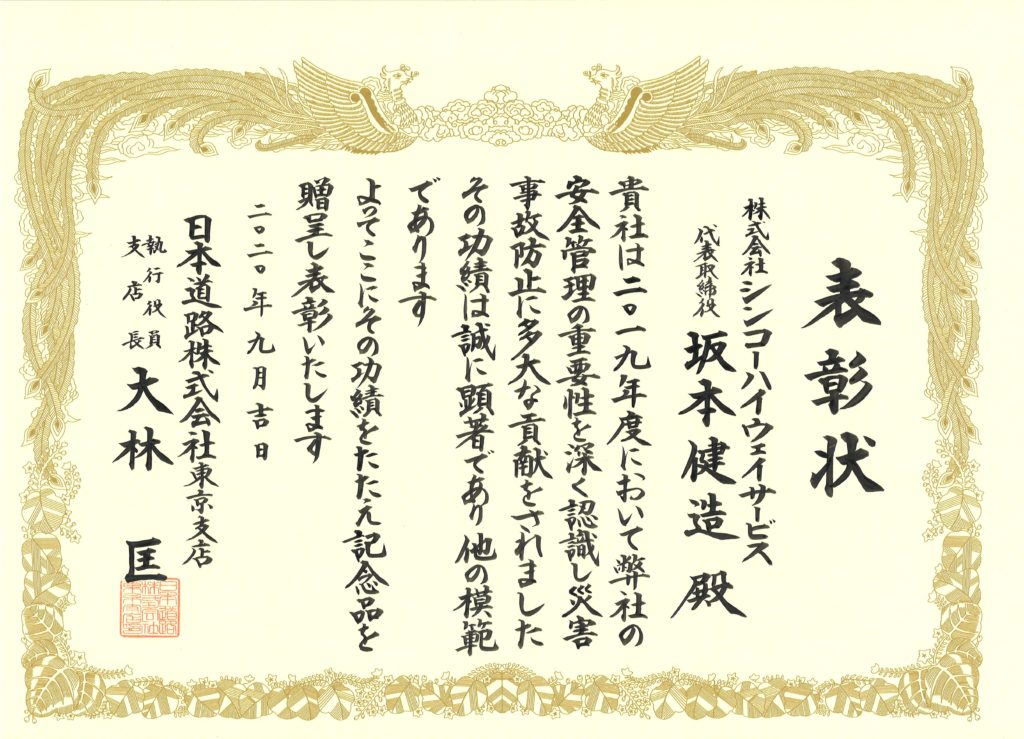 表彰状
株式会社シンコーハイウェイサービス
代表取締役 坂本健造 殿
貴社は二〇一九年度において弊社の
安全管理の重要性を深く認識し災害
事故防止に多大な貢献をされました
その功績は誠に顕著であり他の模範
であります
よってここにその功績をたたえ記念品を
贈呈し表彰いたします
二〇二〇年九月吉日
日本道路株式会社東京支店
執行役員
支店長 大林 匡